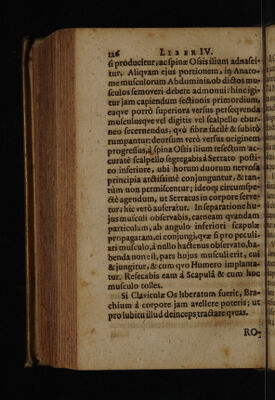 126 LIBER IV.
si producitur, ac spinæ Ossis ilium adnasci-
tur. Aliqvam ejus portionem, in Anato-
me musculorum Abdominis, ob dictos mu-
sculos semoveri debere admonui: hinc igi-
tur jam capiendum sectionis primordium,
eaqve porrò superiora versus perseqvenda
musculusqve vel digitis vel scalpello ebur-
neo secernendus, qvò fibræ facilè & subitò
rumpantur: deorsum verò versus originem
progressus, à spina Ossis ilium resectum ac-
curatè scalpello segregabis à Serrato posti-
co inferiore, ubi horum duorum nervosa
principia arctissimè conjunguntur, & tan-
tùm non permiscentur; ideoq; circumspe-
ctè agendum, ut Serratus in corpore serve-
tur; hic verò auferatur. In separatione hu-
jus musculi observabis, carneam qvandam
particulam, ab angulo inferiori scapulæ
propagatam, ei conjungi, qvæ si pro peculi-
ari musculo, à nullo hactenus observato, ha-
benda non est, pars hujus musculi erit, cui
& jungitur, & cum qvo Humero implanta-
tur. Resecabis eam à Scapulâ & cum hoc
musculo tolles.
Si Claviculæ Os liberatum fuerit, Bra-
chium à corpore jam avellere poteris; ut
pro lubitu illud deinceps tractare qveas.
RO-